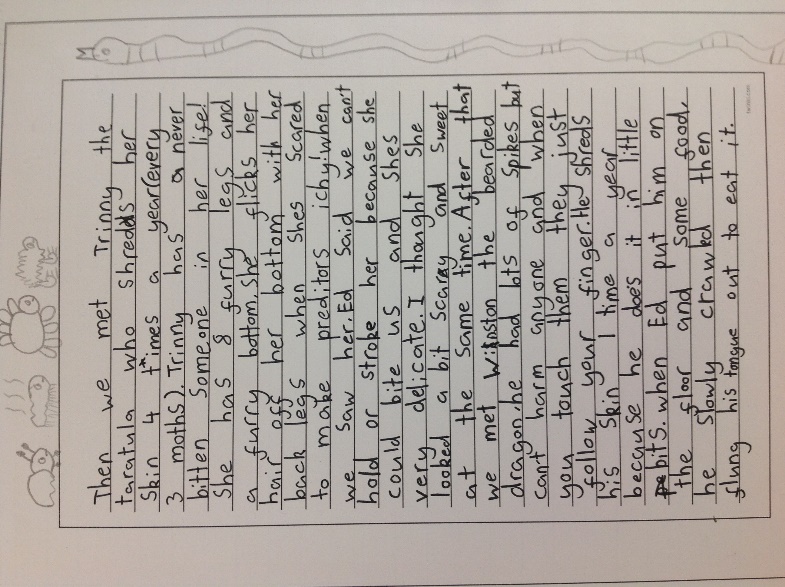 Then we met Trinny the
taratula who shredds her
Skin 4 times a year(every
3 moths). Trinny has a never
bitten Someone in her life!
She has 8 furry legs and
a furry bottom. She flicks her
hair off her bottom with her
back legs when shes scared
to make preditors ichy! When
we saw her. Ed Said we can't
hold or stroke her because she
could bite us and Shes
very delicate. I thought She
looked a bit scarey and Sweet
at the Same time. After that
we met Winston the bearded
dragon, he had lots of Spikes but
cant harm anyone and when
you touch them they just
follow your finger. He shreds
his Skin 1 time a year
because he does it in little
bits. when Ed put him on
the floor and some food,
he Slowly crawled then
flung his tongue out to eat it.